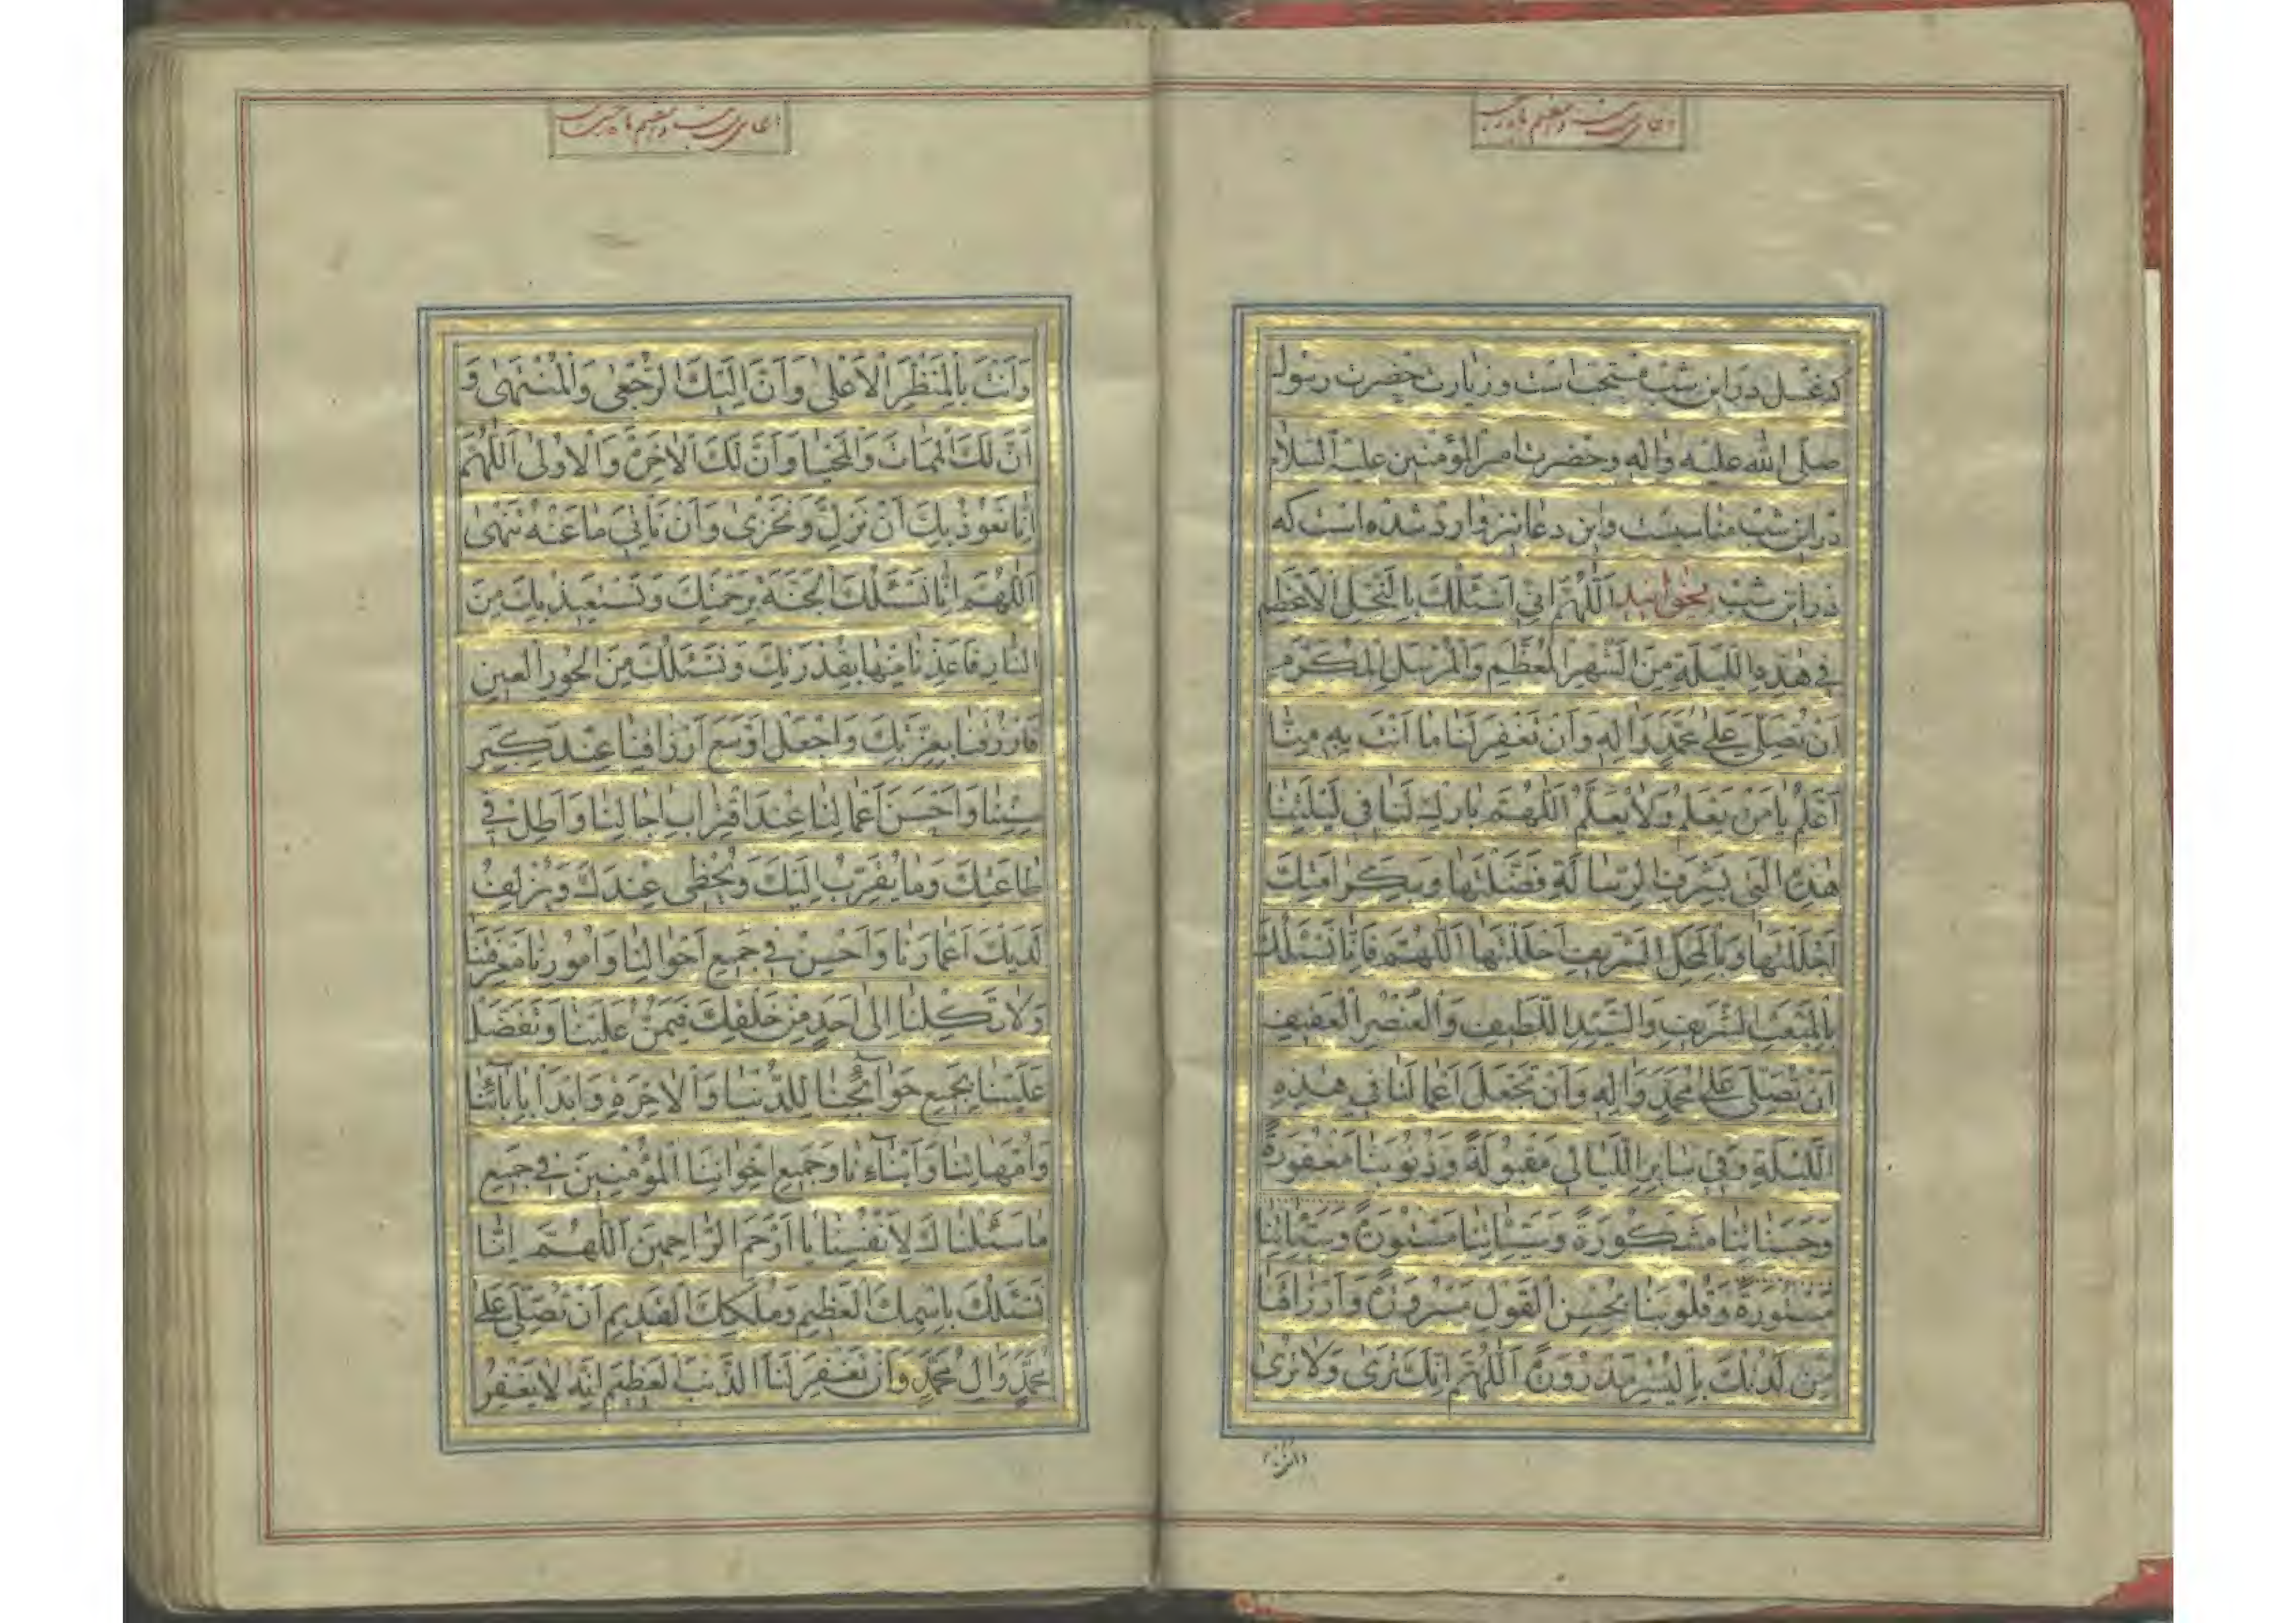 که غسل در این شب مستحب است و زیارت حضرت رسول
صلی الله علیه واله وحضرت امیر المؤمنین علیه السلام
در این شب مناسبست واین دعا نیز وارد شده است که
در این شب بخوانید اَللّهُمَّ اِنّی اَسْئَلُكَ بِالنَّجْلِ الْاَعْظَمِ
فی هٰذِهِ اللَّیْلَةِ مِنَ الشَّهْرِ الْمُعَظَّمِ وَالْمُرْسَلِ الْمُكَرَّمِ
اَنْ تُصَلِّیَ عَلی مُحَمَّدٍ وَالِهِ وَاَنْ تَغْفِرَ لَنا ما اَنْتَ بِهِ مِنّا
اَعْلَمُ یا مَنْ یَعْلَمُ وَلا یُعْلَمُ اَللّهُمَّ بارِكْ لَنا فی لَیْلَتِنا
هٰذِهِ الَّتی بِشَرَفِ الرِّسالَةِ فَضَّلْتَها وَبِكَرامَتِكَ
اَجْلَلْتَها وَبِالْمَحَلِّ الشَّریفِ اَحْلَلْتَها اَللّهُمَّ فَاِنّا نَسْئَلُكَ
بِالْمَبْعَثِ الشَّریفِ وَالسَّیِّدِ اللَّطیفِ وَالْعُنْصُرِ الْعَفیفِ
اَنْ تُصَلِّیَ عَلی مُحَمَّدٍ وَالِهِ وَاَنْ تَجْعَلَ اَعْمالَنا فی هٰذِهِ
اللَّیْلَةِ وَفی سایِرِ اللَّیالی مَقْبُولَةً وَذُنُوبَنا مَغْفُورَةً
وَحَسَناتِنا مَشْكُورَةً وَسَیِّئاتِنا مَسْتُورَةً وَسَیِّئاتِنا
مَسْتُورَةً وَقُلُوبَنا بِحُسْنِ الْقَوْلِ مَسْرُورَةً وَاَرْزاقَنا
مِنْ لَدُنْكَ بِالْیُسْرِ مَدْرُورَةً اَللّهُمَّ اِنَّكَ تَری وَلا تُری
وَاَنْتَ بِالْمَنْظَرِ الْاَعْلی وَاَنَّ اِلَیْكَ الرُّجْعی وَالْمُنْتَهی وَ
اَنَّ لَكَ الْمَماتَ وَالْمَحْیا وَاَنَّ لَكَ الْاخِرَةَ وَالْاُولی اَللّهُمَّ
اِنّا نَعُوذُ بِكَ اَنْ نَزِلَّ وَنَخْزی وَاَنْ نَأْتِیَ ما عَنْهُ تَنْهی
اَللّهُمَّ اِنّا نَسْئَلُكَ الْجَنَّةَ بِرَحْمَتِكَ وَنَسْتَعیذُ بِكَ مِنَ
النّارِ فَاَعِذْنا مِنْها بِقُدْرَتِكَ وَنَسْئَلُكَ مِنَ الْحُورِ الْعینِ
فَارْزُقْنا بِعِزَّتِكَ وَاجْعَلْ اَوْسَعَ اَرْزاقِنا عِنْدَ كِبَرِ
سِنِّنا وَاَحْسَنَ اَعْمالِنا عِنْدَ اقْتِرابِ اجالِنا وَاَطِلْ فی
طاعَتِكَ وَما یُقَرِّبُ اِلَیْكَ وَیُحْظی عِنْدَكَ وَیُزْلِفُ
لَدَیْكَ اَعْمارَنا وَاَحْسِنْ فی جَمیعِ اَحْوالِنا وَاُمُورِنا مَعْرِفَتَنا
وَلا تَكِلْنا اِلی اَحَدٍ مِنْ خَلْقِكَ فَیَمُنَّ عَلَیْنا وَتَفَضَّلْ
عَلَیْنا بِجَمیعِ حَوائِجِنا لِلدُّنْیا وَالْاخِرَةِ وَابْدَاْ بِابائِنا
وَاُمَّهاتِنا وَاَبْناءِنا وَجَمیعِ اِخْوانِنَا الْمُؤْمِنینَ فی جَمیعِ
ما سَئَلْناكَ لِاَنْفُسِنا یا اَرْحَمَ الرّاحِمینَ اَللّهُمَّ اِنّا
نَسْئَلُكَ بِاسْمِكَ الْعَظیمِ وَمُلْكِكَ الْقَدیمِ اَنْ تُصَلِّیَ عَلی
مُحَمَّدٍ وَالِ مُحَمَّدٍ وَاَنْ تَغْفِرَ لَنَا الذَّنْبَ الْعَظیمَ اِنَّهُ لا یَغْفِرُ